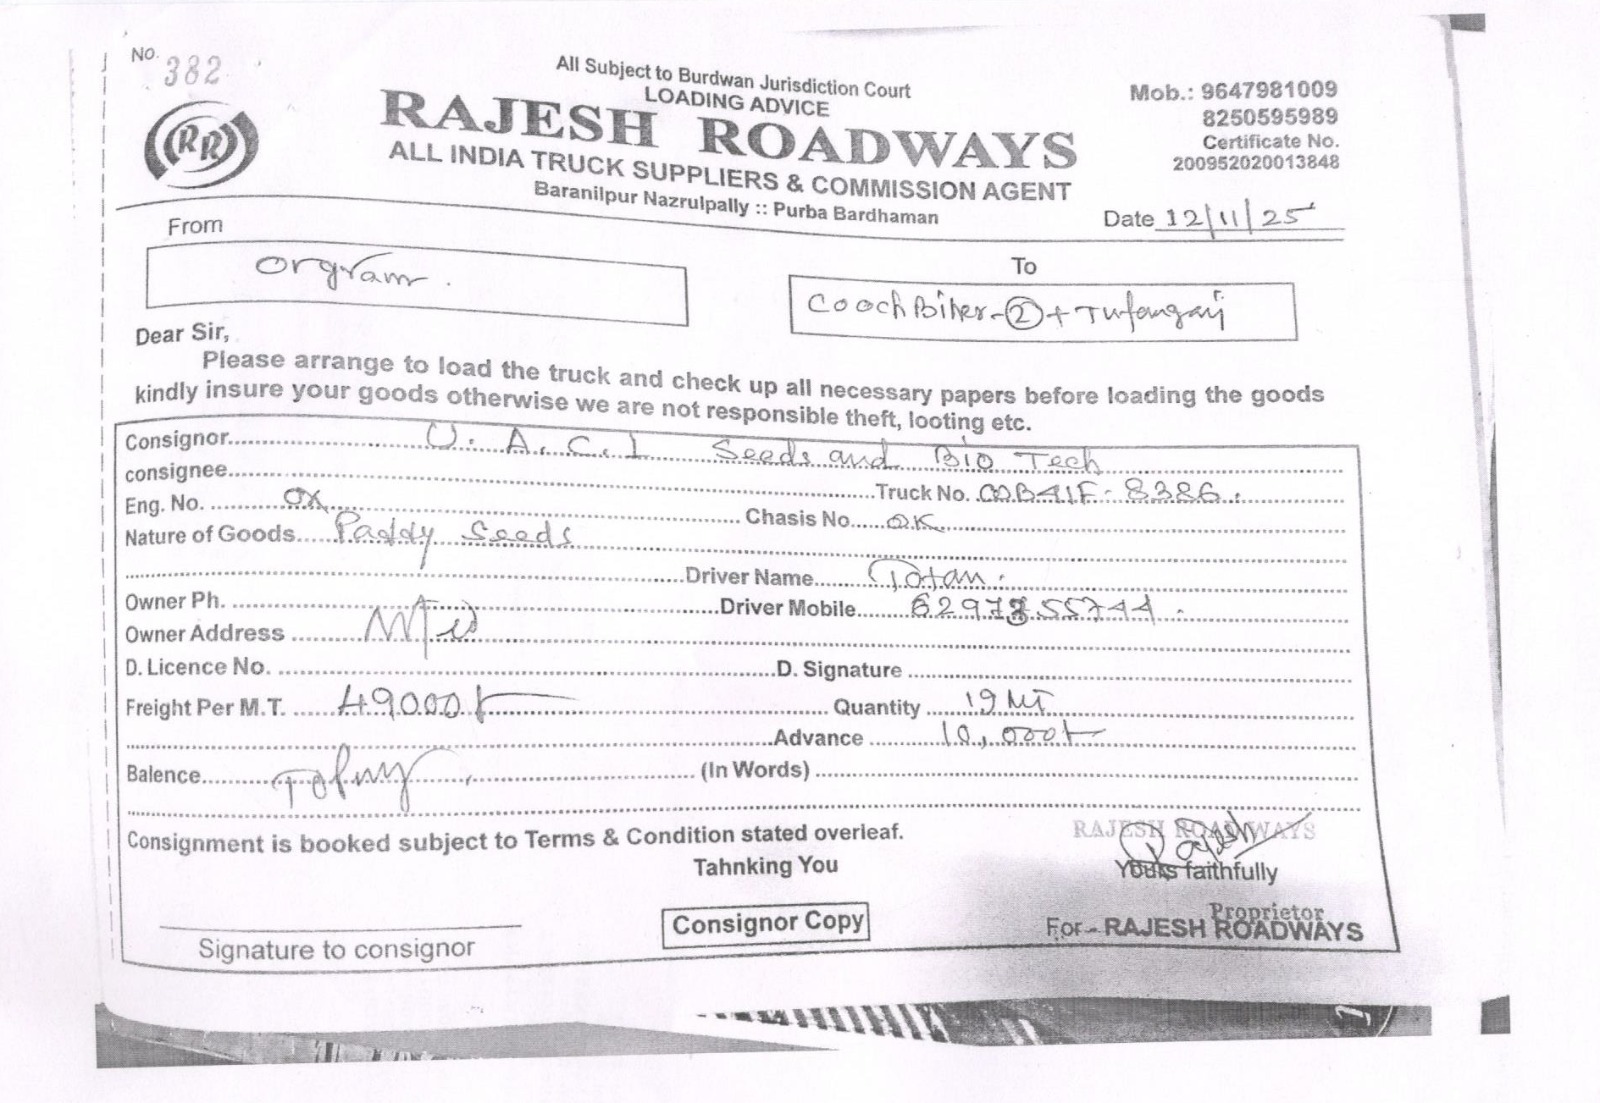 No. 382
All Subject to Burdwan Jurisdiction Court
LOADING ADVICE
RR
RAJESH ROADWAYS
ALL INDIA TRUCK SUPPLIERS & COMMISSION AGENT
Baranilpur Nazrulpally :: Purba Bardhaman
Mob.: 9647981009
8250595989
Certificate No.
200952020013848
Date 12/11/25
From
Orgram.
To
Cooch Biher-② + Tufangaj
Dear Sir,
Please arrange to load the truck and check up all necessary papers before loading the goods
kindly insure your goods otherwise we are not responsible theft, looting etc.
Consignor U. A. C. I Seeds and Bio Tech
consignee Truck No. WB41F-8386.
Eng. No. OK Chasis No. OK
Nature of Goods Paddy Seeds
Driver Name Totan.
Owner Ph. Driver Mobile
Owner Address
D. Licence No. D. Signature
Freight Per M.T. 49000/- Quantity 19 MT
Advance 10,000/-
Balence (In Words)
Consignment is booked subject to Terms & Condition stated overleaf.
RAJESH ROADWAYS
Rajesh
Tahnking You
Yours faithfully
Proprietor
Consignor Copy
For - RAJESH ROADWAYS
Signature to consignor